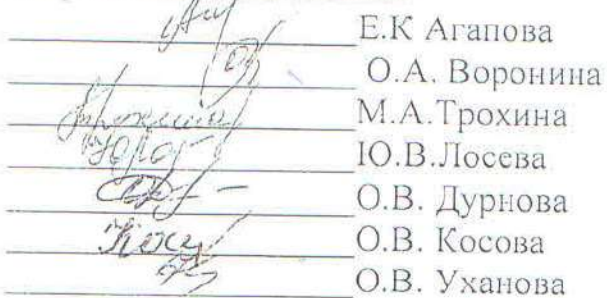 Е.К Агапова
О.А. Воронина
М.А.Трохина
Ю.В.Лосева
О.В. Дурнова
О.В. Косова
О.В. Уханова